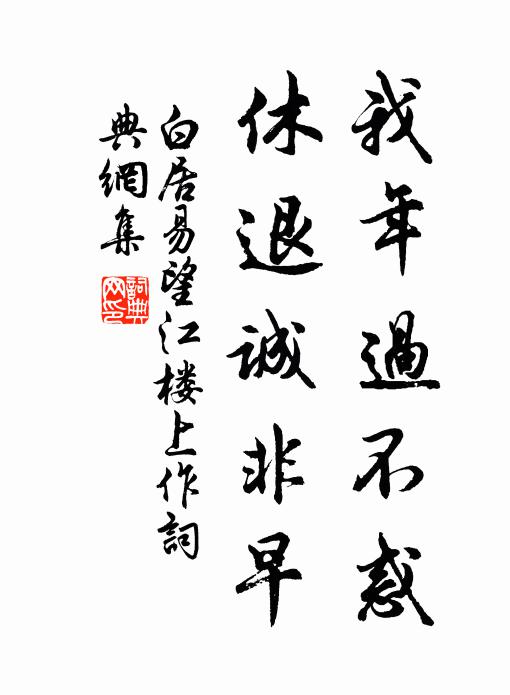 我年過不惑
休退誠非早
白居易望江楼上作詞
典網集
詞典网印